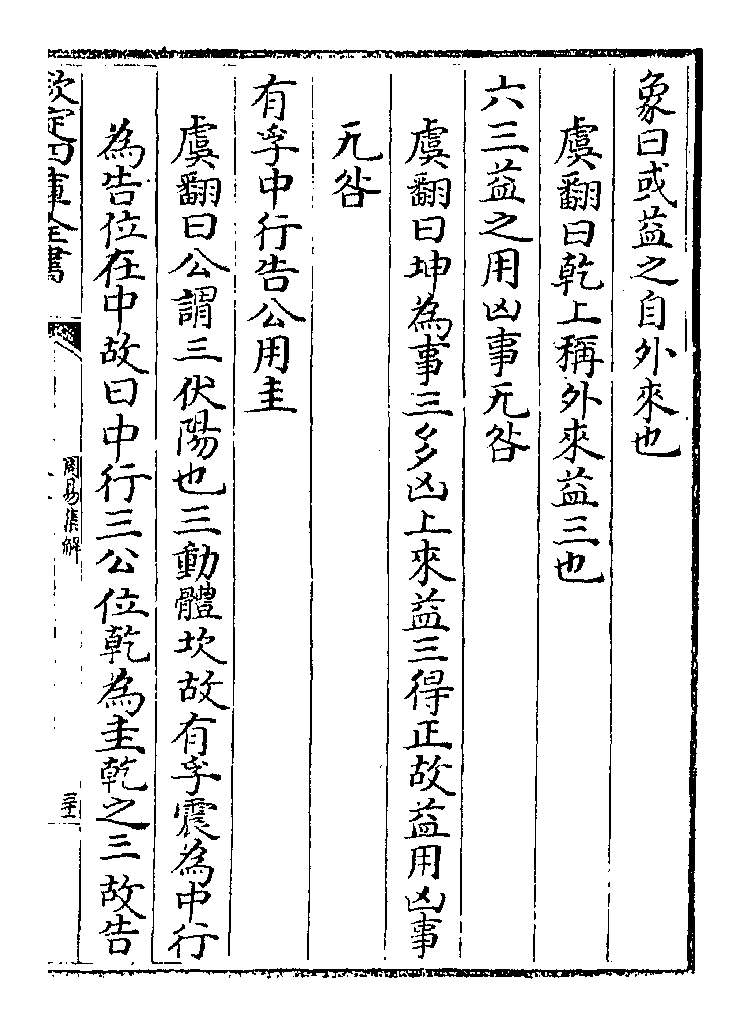 象曰或益之自外來也
虞翻曰乾上稱外來益三也
六三益之用凶事无咎
虞翻曰坤為事三多凶上來益三得正故益用凶事
无咎
有孚中行告公用圭
虞翻曰公謂三伏陽也三動體坎故有孚震為中行
為告位在中故曰中行三公位乾為圭乾之三故告
欽定四庫全書
周易集解